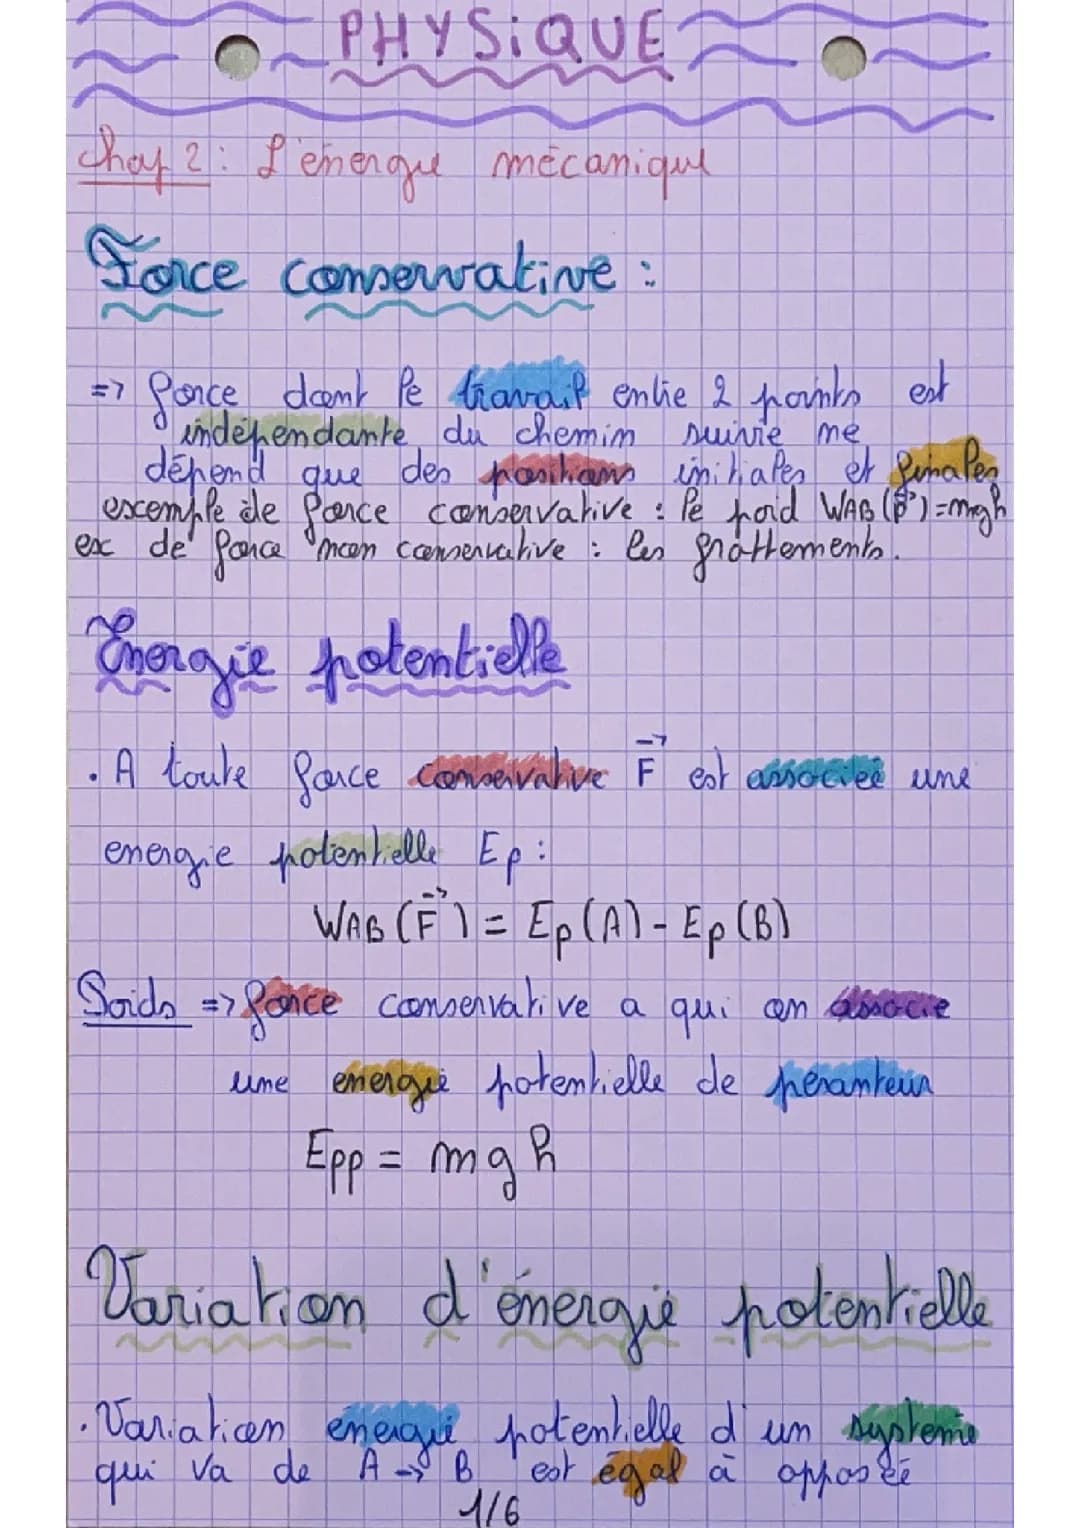 PHYSIQUE
Chap 2 : L'énergie mécanique
Force conservative :
=> force dont le travail entre 2 points est
indépendante du chemin suivie ne
dépend que des positions initiales et finales
exemple de force conservative : le poid WAB (P) = mgh
ex de force non conservative : les frottements.
Énergie potentielle
. A toute force conservative F est associée une
energie potentielle Ep :
WAB (F) = Ep(A) - Ep(B)
Poids => force conservative a qui on associe
une energie potentielle de pesanteur
Epp = mgh
Variation d'énergie potentielle
. Variation énergie potentielle d'un système
qui va de A -> B est égal à opposée
1/6